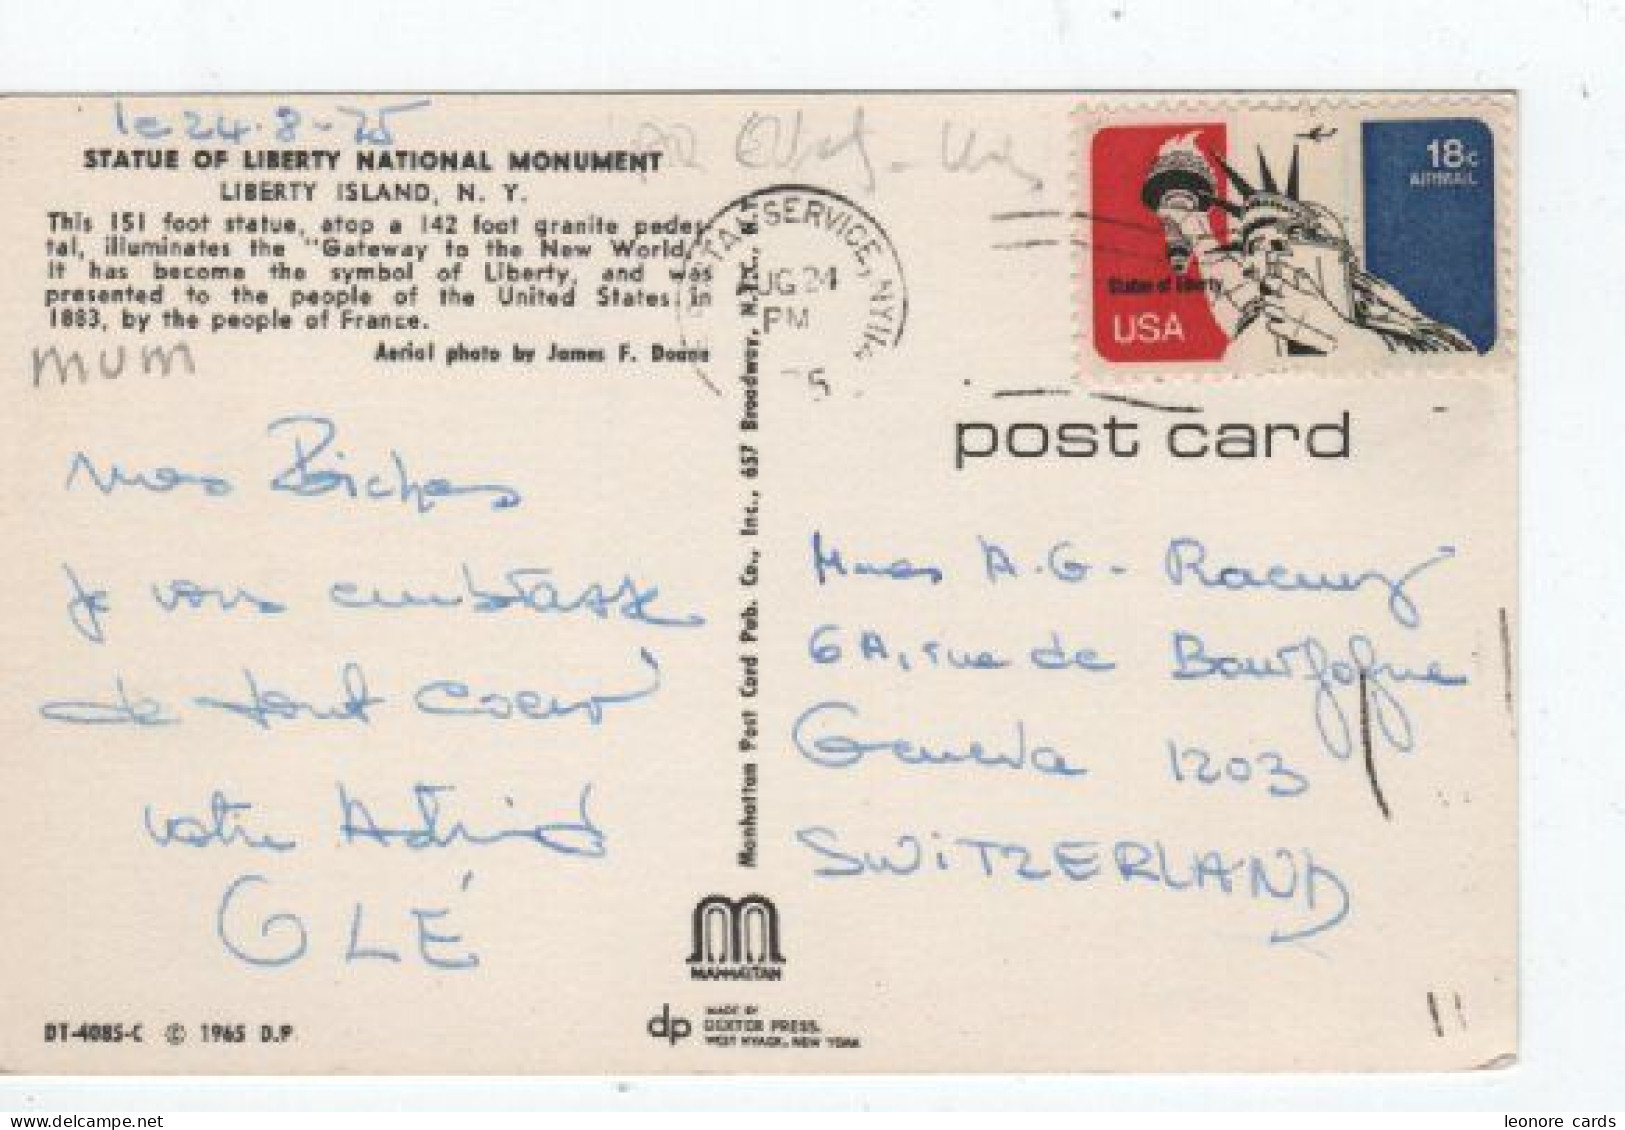 le 24-8-75
STATUE OF LIBERTY NATIONAL MONUMENT
LIBERTY ISLAND, N. Y.
This 151 foot statue, atop a 142 foot granite pedes-
tal, illuminates the "Gateway to the New World."
It has become the symbol of Liberty, and was
presented to the people of the United States in
1883, by the people of France.
Aerial photo by James F. Doane
MUM
mes Biches
je vous embrasse
de tout coeur
votre Astrid
GLÉ
DT-4085-C © 1965 D.P.
Manhattan Post Card Pub. Co., Inc., 657 Broadway, N.Y.C., N.Y.
MANHATTAN
dp
MADE BY
DEXTER PRESS.
WEST NYACK, NEW YORK
SERVICE, NY
UG 24
PM
5
18c
AIRMAIL
Statue of Liberty
USA
post card
Mmes A.G.
6A, rue de
Geneva 1203
SWITZERLAND
leonore cards